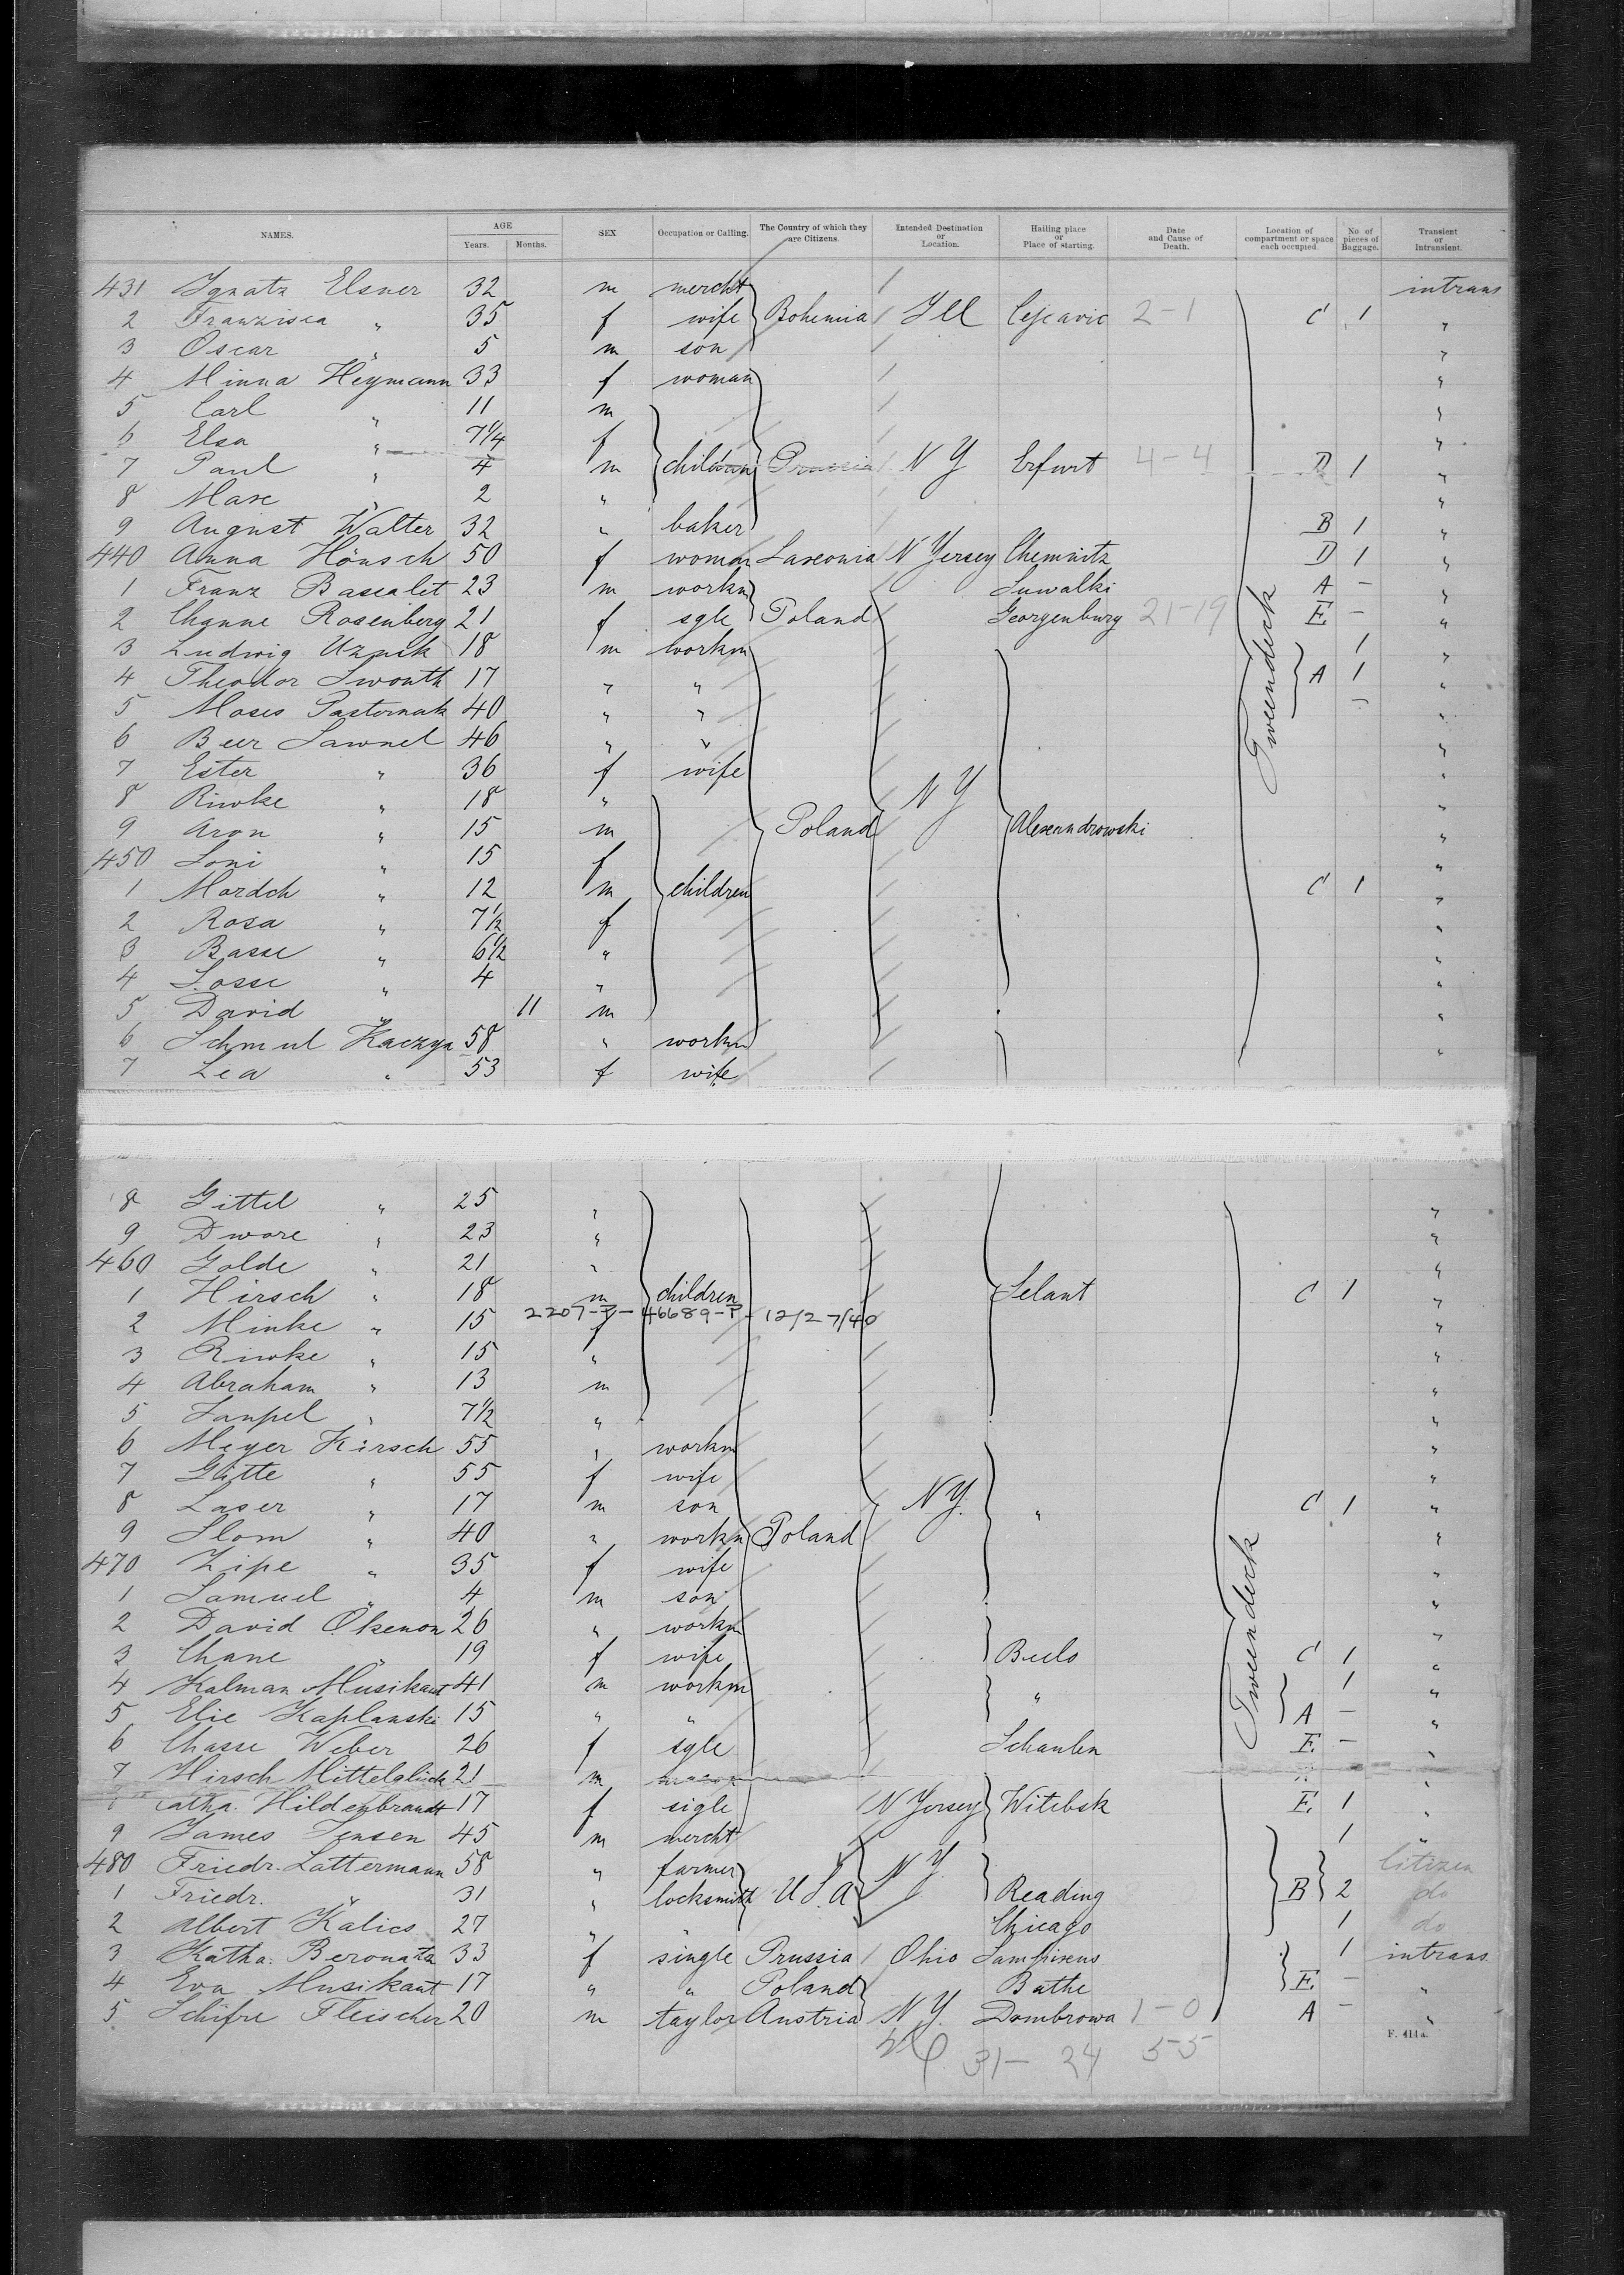 NAMES. AGE Years. Months. SEX Occupation or Calling. The Country of which they are Citizens. Intended Destination or Location. Hailing place or Place of starting. Date and Cause of Death. Location of compartment or space each occupied No. of pieces of Baggage. Transient or Intransient.
431 Ignatz Elsner 32 m mercht intrans
2 Franzisca " 35 f wife Bohemia Ill 2-1 C 1 "
3 Oscar " 5 m son "
4 Minna Heymann 33 f woman "
5 Carl " 11 m "
6 Elsa " 7 1/4 f "
7 Paul " 4 m children Prussia N Y Erfurt 4-4 D 1 "
8 Max " 2 " "
9 August Walter 32 " baker B 1 "
440 Anna Hönsch 50 f woman Saxonia N Jersey Chemnitz D 1 "
1 Franz Bascalet 23 m workm Suwalki A - "
2 Channe Rosenberg 21 f sgle Poland Georgenburg 21-19 E - "
3 Ludwig 18 m workm 1 "
4 Theodor 17 " " A 1 "
5 Moses Pasternak 40 " " - "
6 Beer Sawnel 46 " " "
7 Ester " 36 f wife "
8 Riwke " 18 " N Y "
9 Aron " 15 m Poland Alexandrowski "
450 Soni " 15 f "
1 Mordch " 12 m children C 1 "
2 Rosa " 7 1/2 f "
3 Basse " 6 1/2 " "
4 Sosse " 4 " "
5 David " 11 m "
6 Schmul Kaczya 58 " workm "
7 Lea " 53 f wife
Tweendeck
8 Gittel " 25 " "
9 Dwore " 23 " "
460 Golde " 21 " "
1 Hirsch " 18 m children Selant C 1 "
2207-P-46689-P-12/27/40
2 Minke " 15 f "
3 Riwke " 15 " "
4 Abraham " 13 m "
5 Sanpel " 7 1/2 " "
6 Meyer Hirsch 55 " workm "
7 Gitte " 55 f wife "
8 Laser " 17 m son N Y. " C 1 "
9 Slom " 40 " workm Poland "
470 Zipe " 35 f wife "
1 Samuel " 4 m son "
2 David Okenon 26 " workm "
3 Chane " 19 f wife C 1 "
4 Kalman Musikant 41 m workm " 1 "
5 Elie Kaplanski 15 " " A - "
6 Chasse Weber 26 f sgle Schaulen E - "
7 Hirsch Mittelglück 21 m "
Catha. Hildenbrandt 17 f sigle N Jersey Witebsk E 1 "
9 James Jensen 45 m mercht 1 "
480 Friedr. Lattermann 58 " farmer N Y. Citizen
1 Friedr. " 31 " locksmith U S. A Reading B 2 do
2 Albert Kalics 27 " " Chicago 1 do
3 Katha. 33 f single Prussia Ohio 1 intrans
4 Eva Musikant 17 " " Poland Bathe E - "
5 Schifre Fleischer 20 m taylor Austria N Y. Dombrowa 1-0 A - "
Tweendeck
31- 24 55
F. 414a.